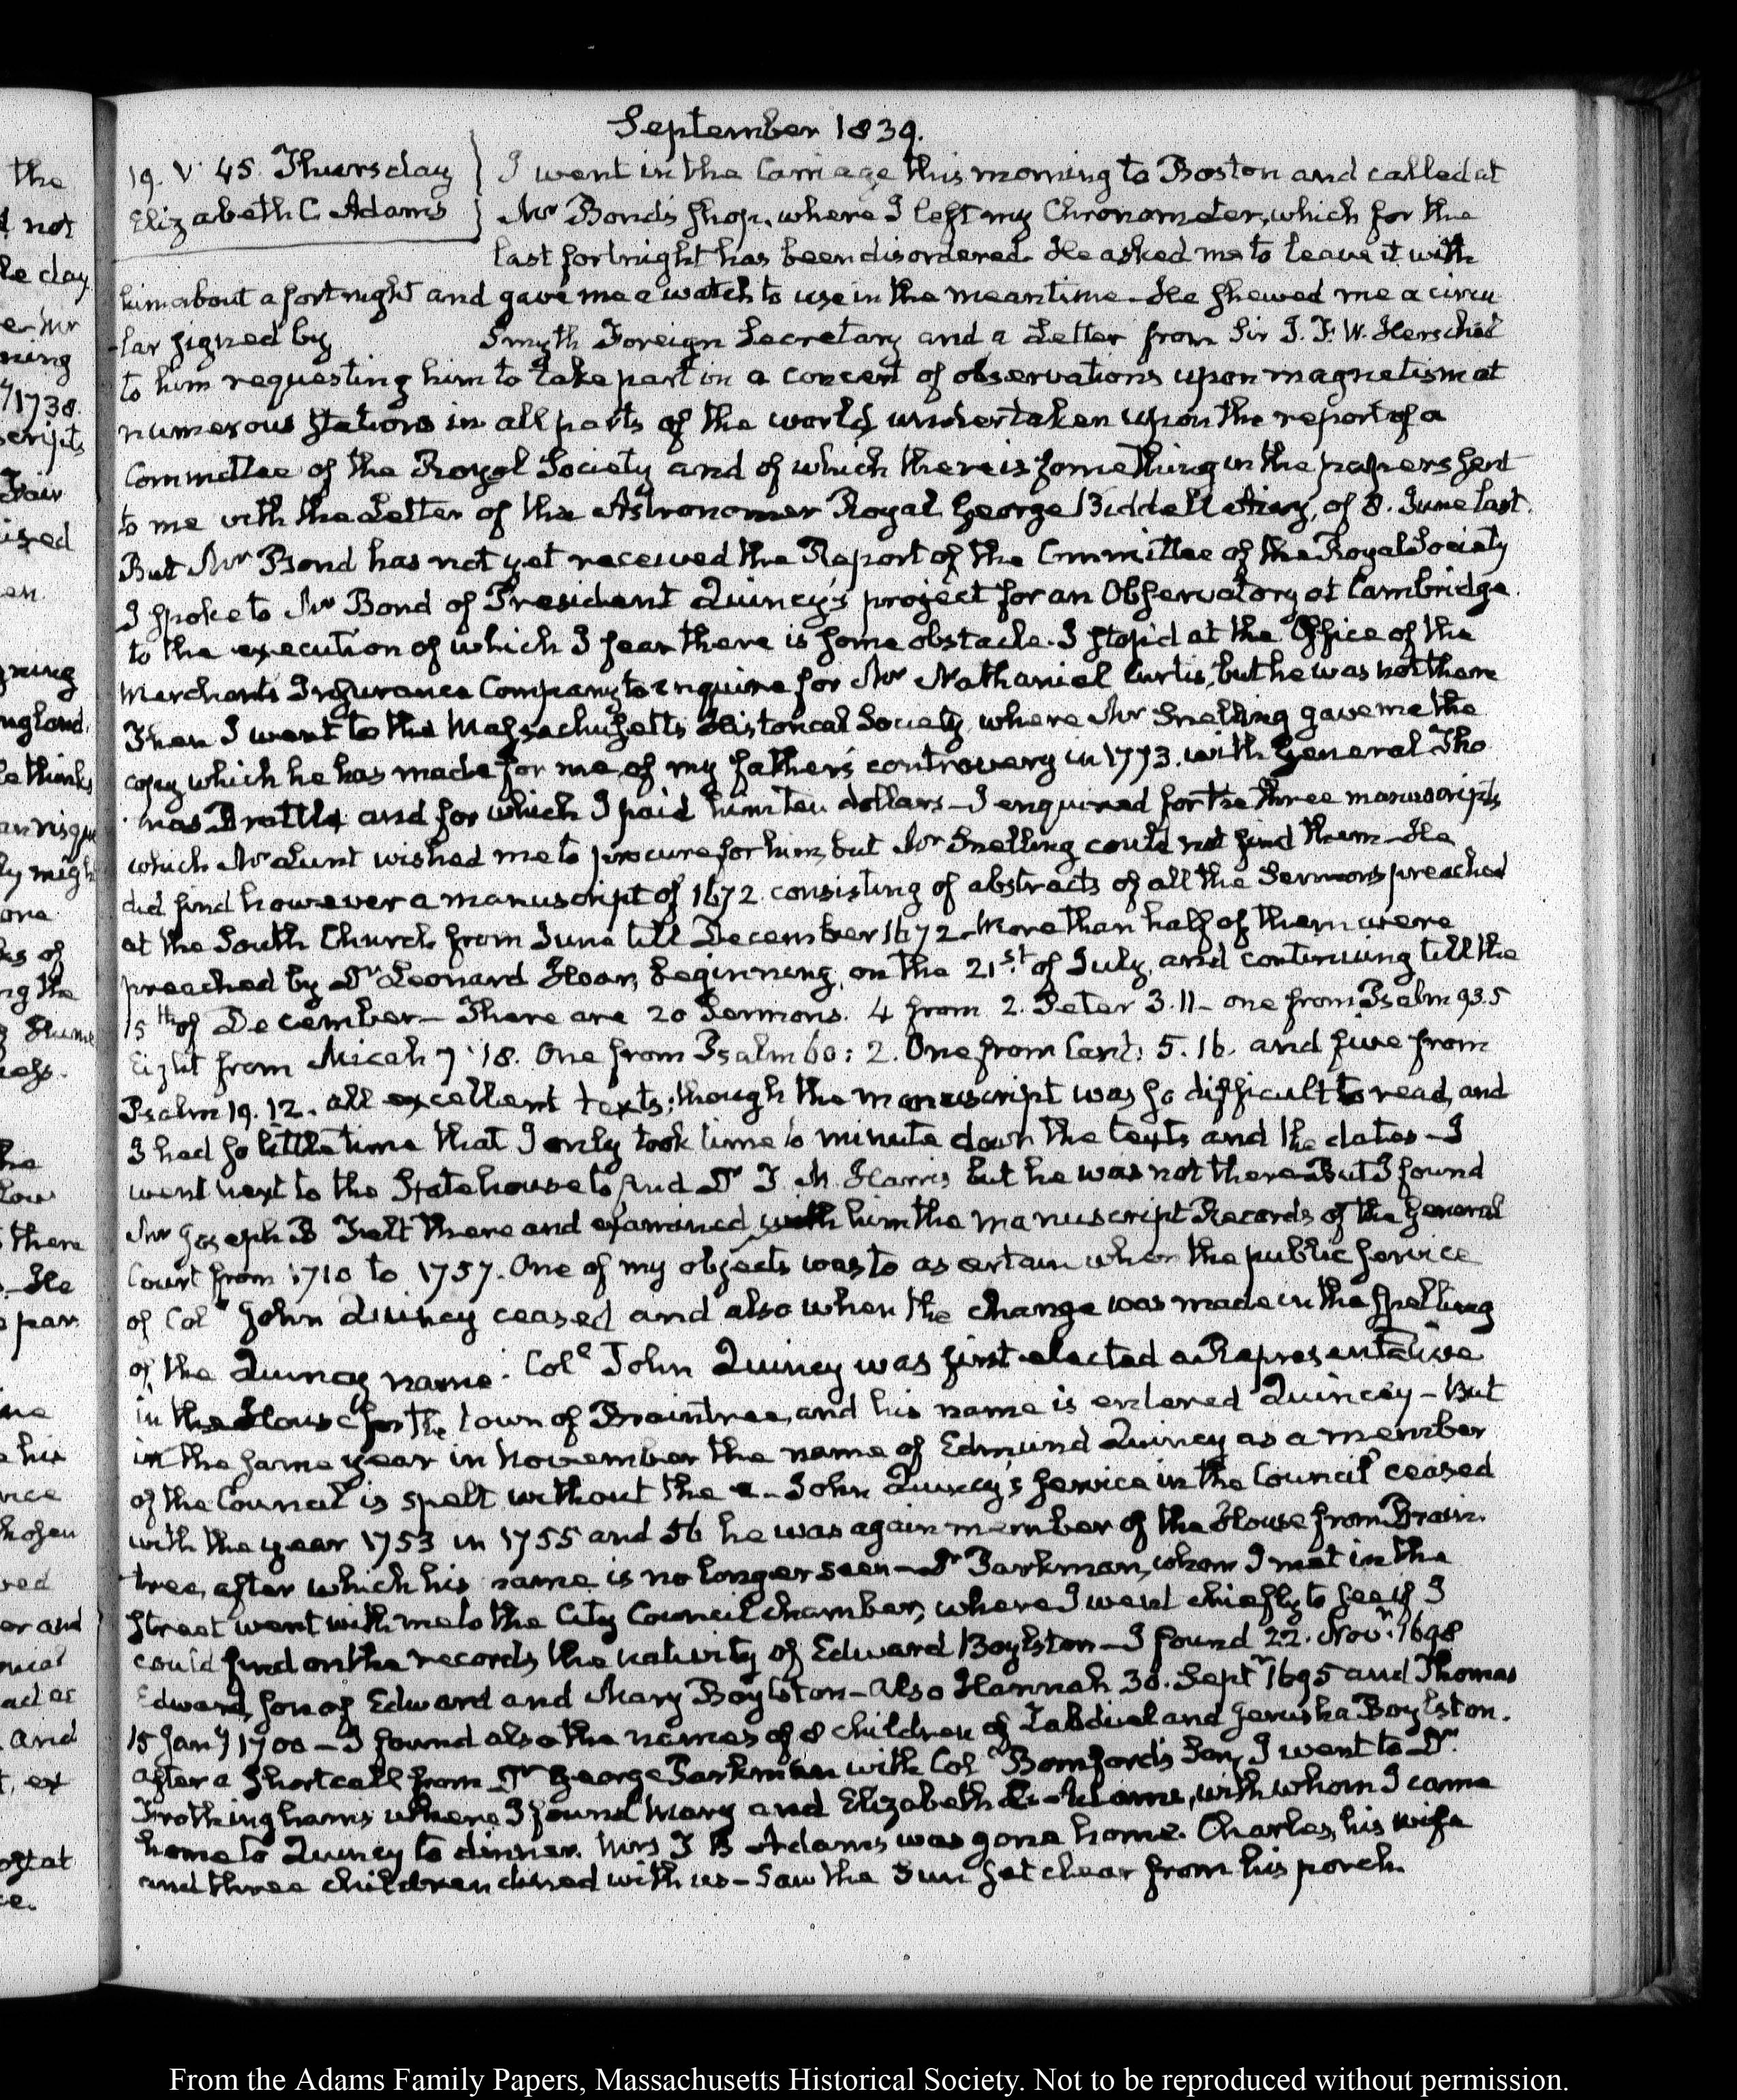 September 1839.
19. V. 45. Thursday
Elizabeth C. Adams
I went in the Carriage this morning to Boston and called at
Mr Bond's shop, where I left my Chronometer, which for the
last fortnight has been disordered. He asked me to leave it with
him about a fortnight and gave me a watch to use in the meantime — He shewed me a circu
-lar signed by Smyth Foreign Secretary and a Letter from Sir J. F. W. Herschel
to him requesting him to take part in a concert of observations upon magnetism at
numerous stations in all parts of the world, undertaken upon the report of a
Committee of the Royal Society and of which there is something in the papers sent
to me with the Letter of the Astronomer Royal George Biddell Airey, of 8. June last.
But Mr Bond has not yet received the Report of the Committee of the Royal Society
I spoke to Mr Bond of President Quincy's project for an Observatory at Cambridge.
to the execution of which I fear there is some obstacle. I stop'd at the Office of the
Merchants Insurance Company to enquire for Mr Nathaniel Curtis, but he was not there
Then I went to the Massachusetts Historical Society, where Mr Snelling gave me the
copy which he has made for me, of my father's controversy in 1773. with General Tho
mas Brattle and for which I paid him ten dollars — I enquired for the three manuscripts
which Mr Lunt wished me to procure for him, but Mr Snelling could not find them — He
did find however a manuscript of 1672. consisting of abstracts of all the Sermons preached
at the South Church from June till December 1672 — More than half of them were
preached by Dr Leonard Hoar, beginning, on the 21st. of July, and continuing till the
15th of December — There are 20 Sermons. 4 from 2. Peter 3.11 — one from Psalm 93.5
Eight from Micah 7.18. One from Psalm 60: 2. One from Cant: 5. 16. and five from
Psalm 19. 12. all excellent texts; though the manuscript was so difficult to read, and
I had so little time that I only took time to minute down the texts and the dates — I
went next to the State house to find Dr T. M. Harris but he was not there But I found
Mr Joseph B Felt there and examined with him the manuscript Records of the General
Court from 1710 to 1757. One of my objects was to ascertain when the public service
of Coll John Quincy ceased and also when the change was made in the spelling
of the Quincy name. Coll John Quincy was first elected a Representative
in the House for the town of Braintree, and his name is entered Quincey — But
in the same year in November the name of Edmund Quincy as a member
of the Council is spelt without the e — John Quincy's service in the Council ceased
with the year 1753 in 1755 and 56 he was again member of the House from Brain
tree, after which his name is no longer seen — Dr Parkman, whom I met in the
street went with me to the City Council chamber, where I went chiefly to see if I
could find on the records the nativity of Edward Boylston — I found 22. Nov. 1698
Edward, son of Edward and Mary Boylston — also Hannah 30. Sept 1695 and Thomas
15 Jany 1700 — I found also the names of 8 children of Zabdiel and Jerusha Boylston.
after a short call from Dr George Parkman with Coll Bomford's Son, I went to Dr.
Frothingham's where I found Mary and Elizabeth C. Adams, with whom I came
home to Quincy to dinner. Mrs T B Adams was gone home. Charles, his wife
and three children dined with us — Saw the Sun set clear from his porch.
From the Adams Family Papers, Massachusetts Historical Society. Not to be reproduced without permission.